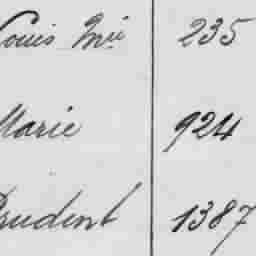 Louis Mie 235
Marie 924
Prudent 1387